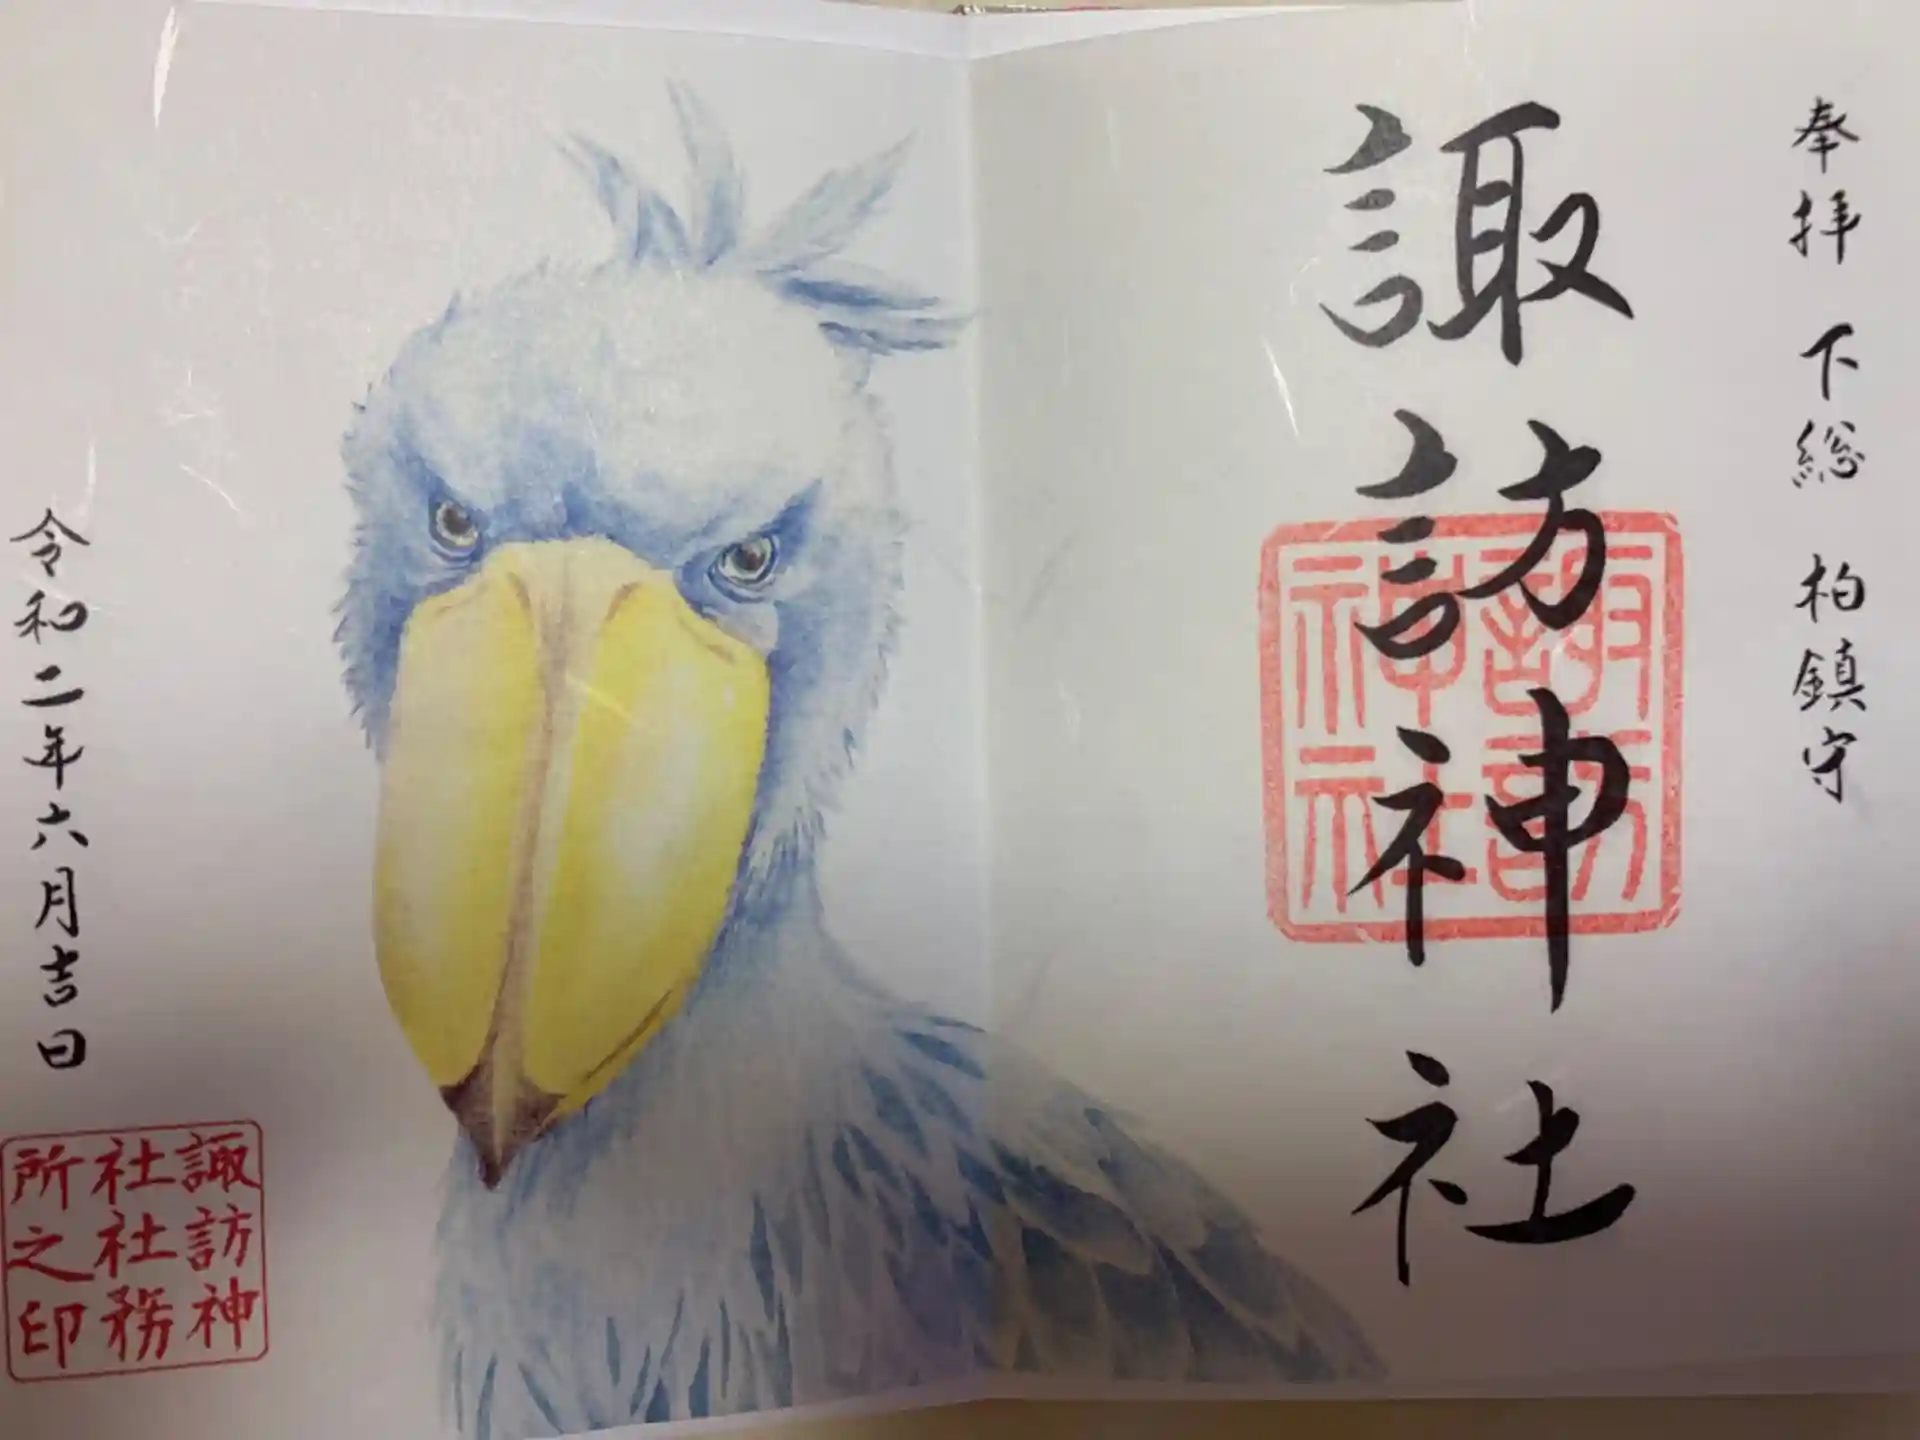 奉拝 下総 柏鎮守
諏訪神社
諏訪
神社
令和二年六月吉日
諏訪神
社社務
所之印